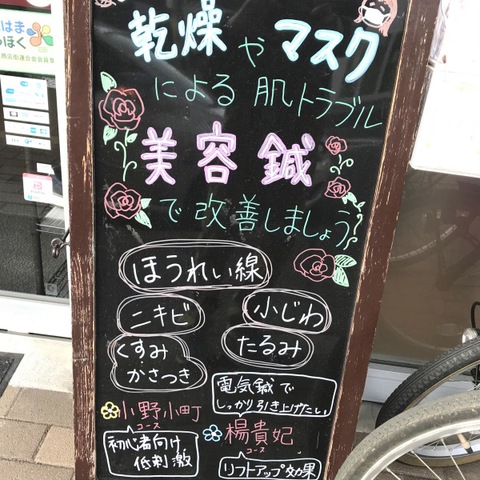 乾燥やマスク
による肌トラブル
美容鍼
で改善しましょう
ほうれい線
ニキビ
小じわ
くすみ
かさつき
たるみ
電気鍼で
しっかり引き上げたい
小野小町
コース
初心者向け
低刺激
楊貴妃
コース
リフトアップ効果